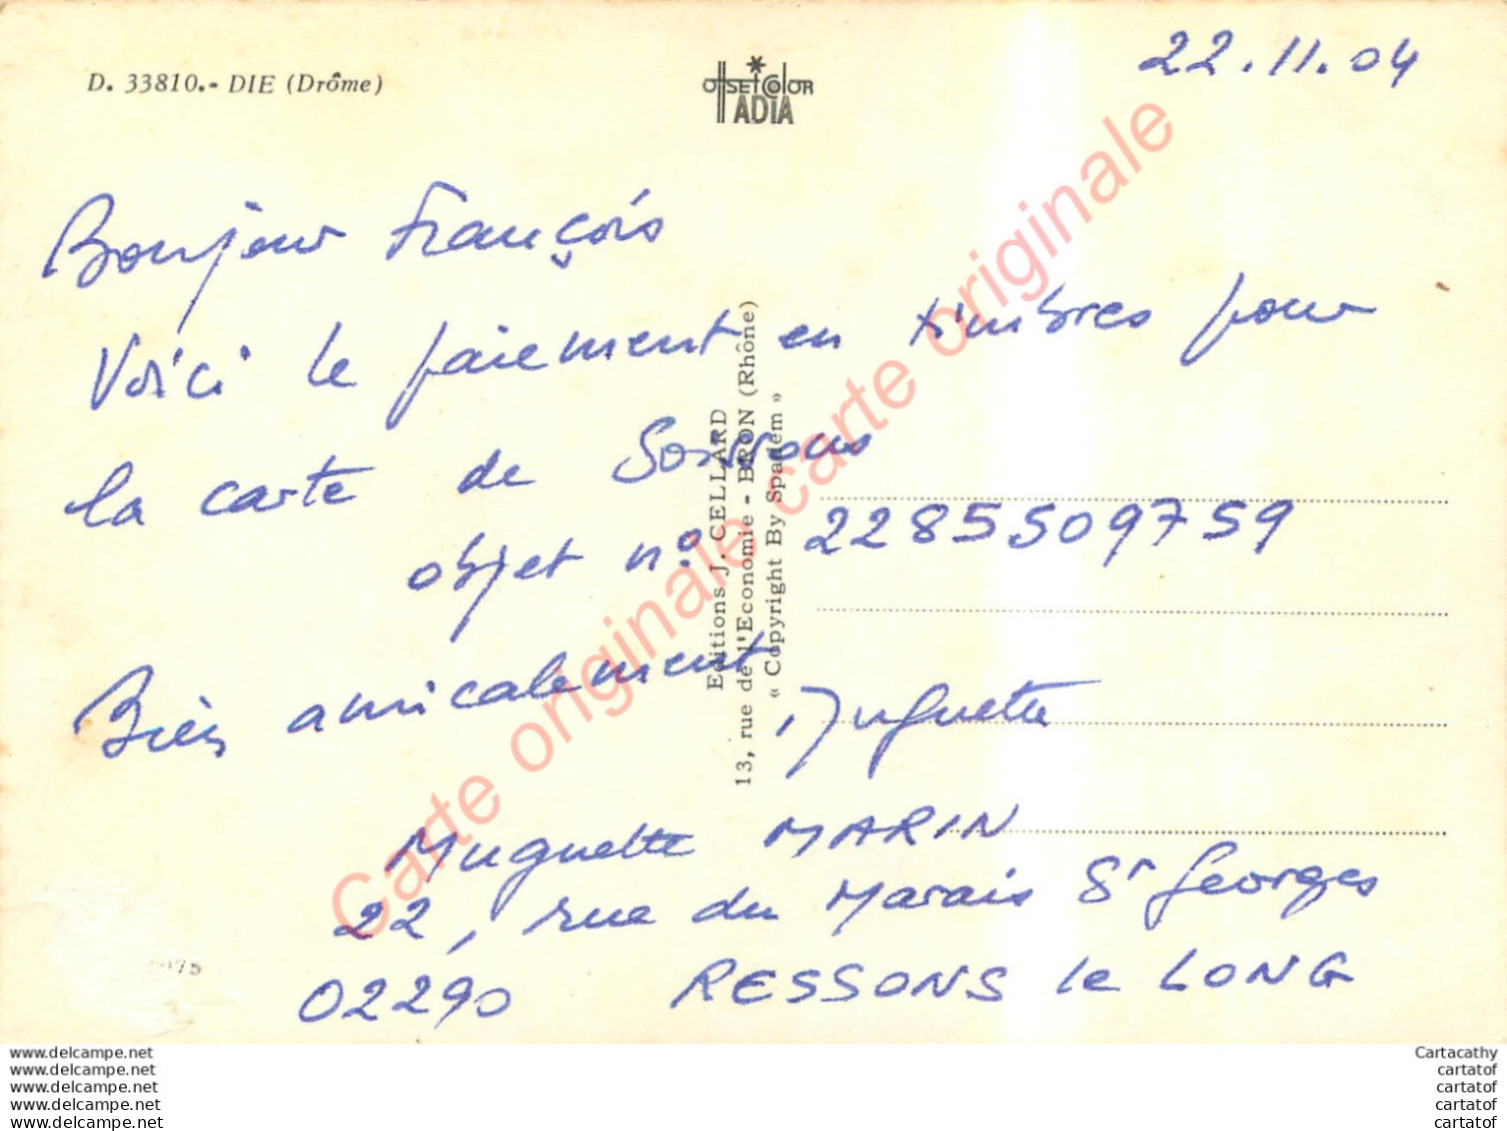 D. 33810.- DIE (Drôme)
OffsetColor
ADIA
22.11.04
Bonjour François
Voici le paiement en timbres pour
la carte de Soissons
objet n° 2285509759
Bien amicalement
Muguette
Muguette MARIN
22, rue du Marais St Georges
02290 RESSONS le LONG
Editions J. CELLARD
13, rue de l'Economie - BRON (Rhône)
« Copyright By Spadem »
Carte originale carte originale
www.delcampe.net
www.delcampe.net
www.delcampe.net
www.delcampe.net
www.delcampe.net
Cartacathy
cartatof
cartatof
cartatof
cartatof